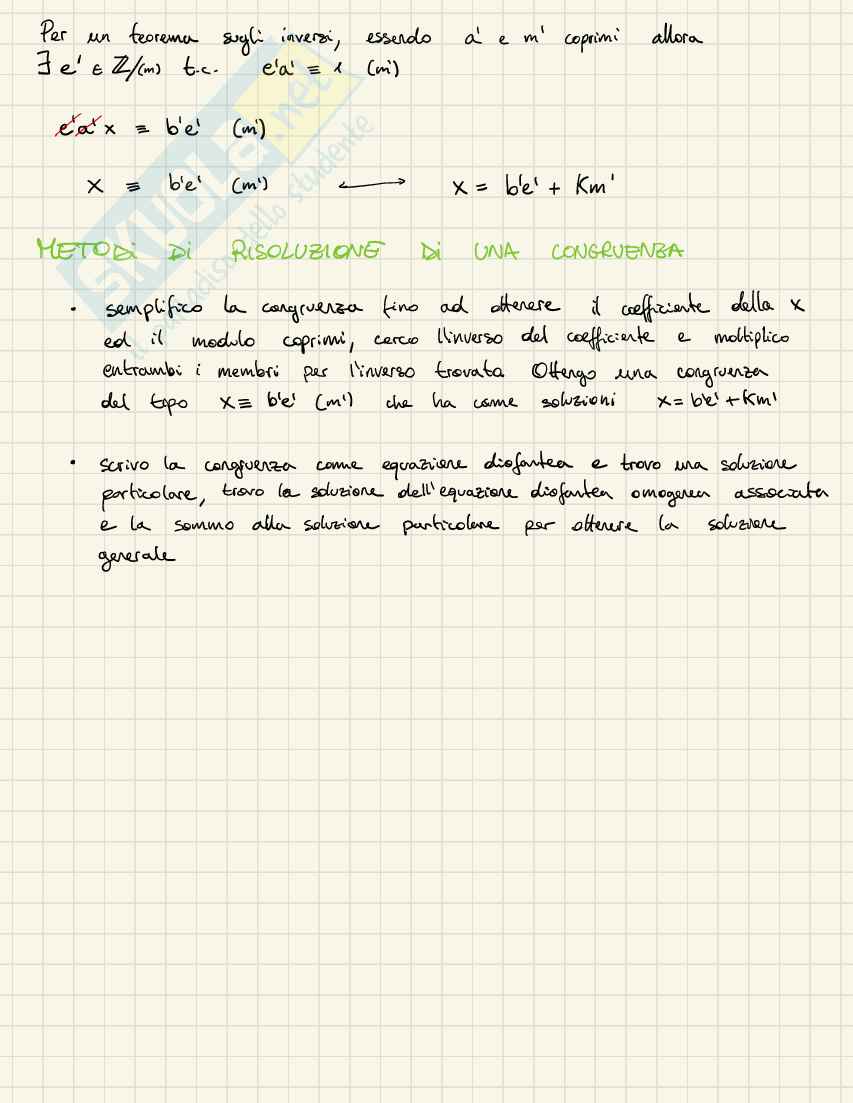 Per un teorema sugli inversi, essendo a' e m' coprimi allora
∃ e' ∈ ℤ/(m) t.c. e'a' ≡ 1 (m')
e'a'x ≡ b'e' (m')
x ≡ b'e' (m') ⟷ x = b'e' + Km'
METODi Di RISOLUZIONE Di UNA CONGRUENZA
• semplifico la congruenza fino ad ottenere il coefficiente della x
ed il modulo coprimi, cerco l'inverso del coefficiente e moltiplico
entrambi i membri per l'inverso trovata Ottengo una congruenza
del tipo x ≡ b'e' (m') che ha come soluzioni x = b'e' + Km'
• scrivo la congruenza come equazione diofantea e trovo una soluzione
particolare, trovo la soluzione dell'equazione diofantea omogenea associata
e la sommo alla soluzione particolare per ottenere la soluzione
generale
SKUOLA.net
il paradiso dello studente